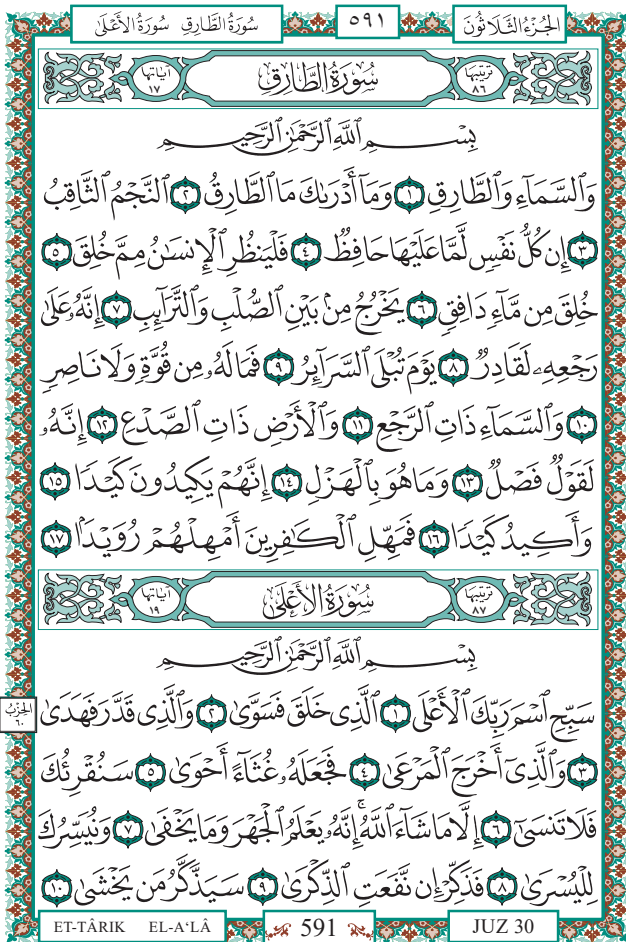 الجُزْءُ الثَّلَاثُونَ ٥٩١ سُورَةُ الطَّارِقِ سُورَةُ الأَعْلَىٰ
تَرْتِيبُهَا ٨٦ سُورَةُ الطَّارِقِ اٰيَاتُهَا ١٧
بِسْمِ ٱللَّهِ ٱلرَّحْمَٰنِ ٱلرَّحِيمِ
وَٱلسَّمَآءِ وَٱلطَّارِقِ ١ وَمَآ أَدْرَىٰكَ مَا ٱلطَّارِقُ ٢ ٱلنَّجْمُ ٱلثَّاقِبُ
٣ إِن كُلُّ نَفْسٍ لَّمَّا عَلَيْهَا حَافِظٌ ٤ فَلْيَنظُرِ ٱلْإِنسَٰنُ مِمَّ خُلِقَ ٥
خُلِقَ مِن مَّآءٍ دَافِقٍ ٦ يَخْرُجُ مِنۢ بَيْنِ ٱلصُّلْبِ وَٱلتَّرَآئِبِ ٧ إِنَّهُۥ عَلَىٰ
رَجْعِهِۦ لَقَادِرٌ ٨ يَوْمَ تُبْلَى ٱلسَّرَآئِرُ ٩ فَمَا لَهُۥ مِن قُوَّةٍ وَلَا نَاصِرٍ
١٠ وَٱلسَّمَآءِ ذَاتِ ٱلرَّجْعِ ١١ وَٱلْأَرْضِ ذَاتِ ٱلصَّدْعِ ١٢ إِنَّهُۥ
لَقَوْلٌ فَصْلٌ ١٣ وَمَا هُوَ بِٱلْهَزْلِ ١٤ إِنَّهُمْ يَكِيدُونَ كَيْدًا ١٥
وَأَكِيدُ كَيْدًا ١٦ فَمَهِّلِ ٱلْكَٰفِرِينَ أَمْهِلْهُمْ رُوَيْدًۢا ١٧
تَرْتِيبُهَا ٨٧ سُورَةُ الأَعْلَىٰ اٰيَاتُهَا ١٩
بِسْمِ ٱللَّهِ ٱلرَّحْمَٰنِ ٱلرَّحِيمِ
سَبِّحِ ٱسْمَ رَبِّكَ ٱلْأَعْلَى ١ ٱلَّذِى خَلَقَ فَسَوَّىٰ ٢ وَٱلَّذِى قَدَّرَ فَهَدَىٰ
الحِزْبُ ٦٠
٣ وَٱلَّذِىٓ أَخْرَجَ ٱلْمَرْعَىٰ ٤ فَجَعَلَهُۥ غُثَآءً أَحْوَىٰ ٥ سَنُقْرِئُكَ
فَلَا تَنسَىٰٓ ٦ إِلَّا مَا شَآءَ ٱللَّهُ ۚ إِنَّهُۥ يَعْلَمُ ٱلْجَهْرَ وَمَا يَخْفَىٰ ٧ وَنُيَسِّرُكَ
لِلْيُسْرَىٰ ٨ فَذَكِّرْ إِن نَّفَعَتِ ٱلذِّكْرَىٰ ٩ سَيَذَّكَّرُ مَن يَخْشَىٰ ١٠
ET-TÂRIK EL-A‘LÂ 591 JUZ 30